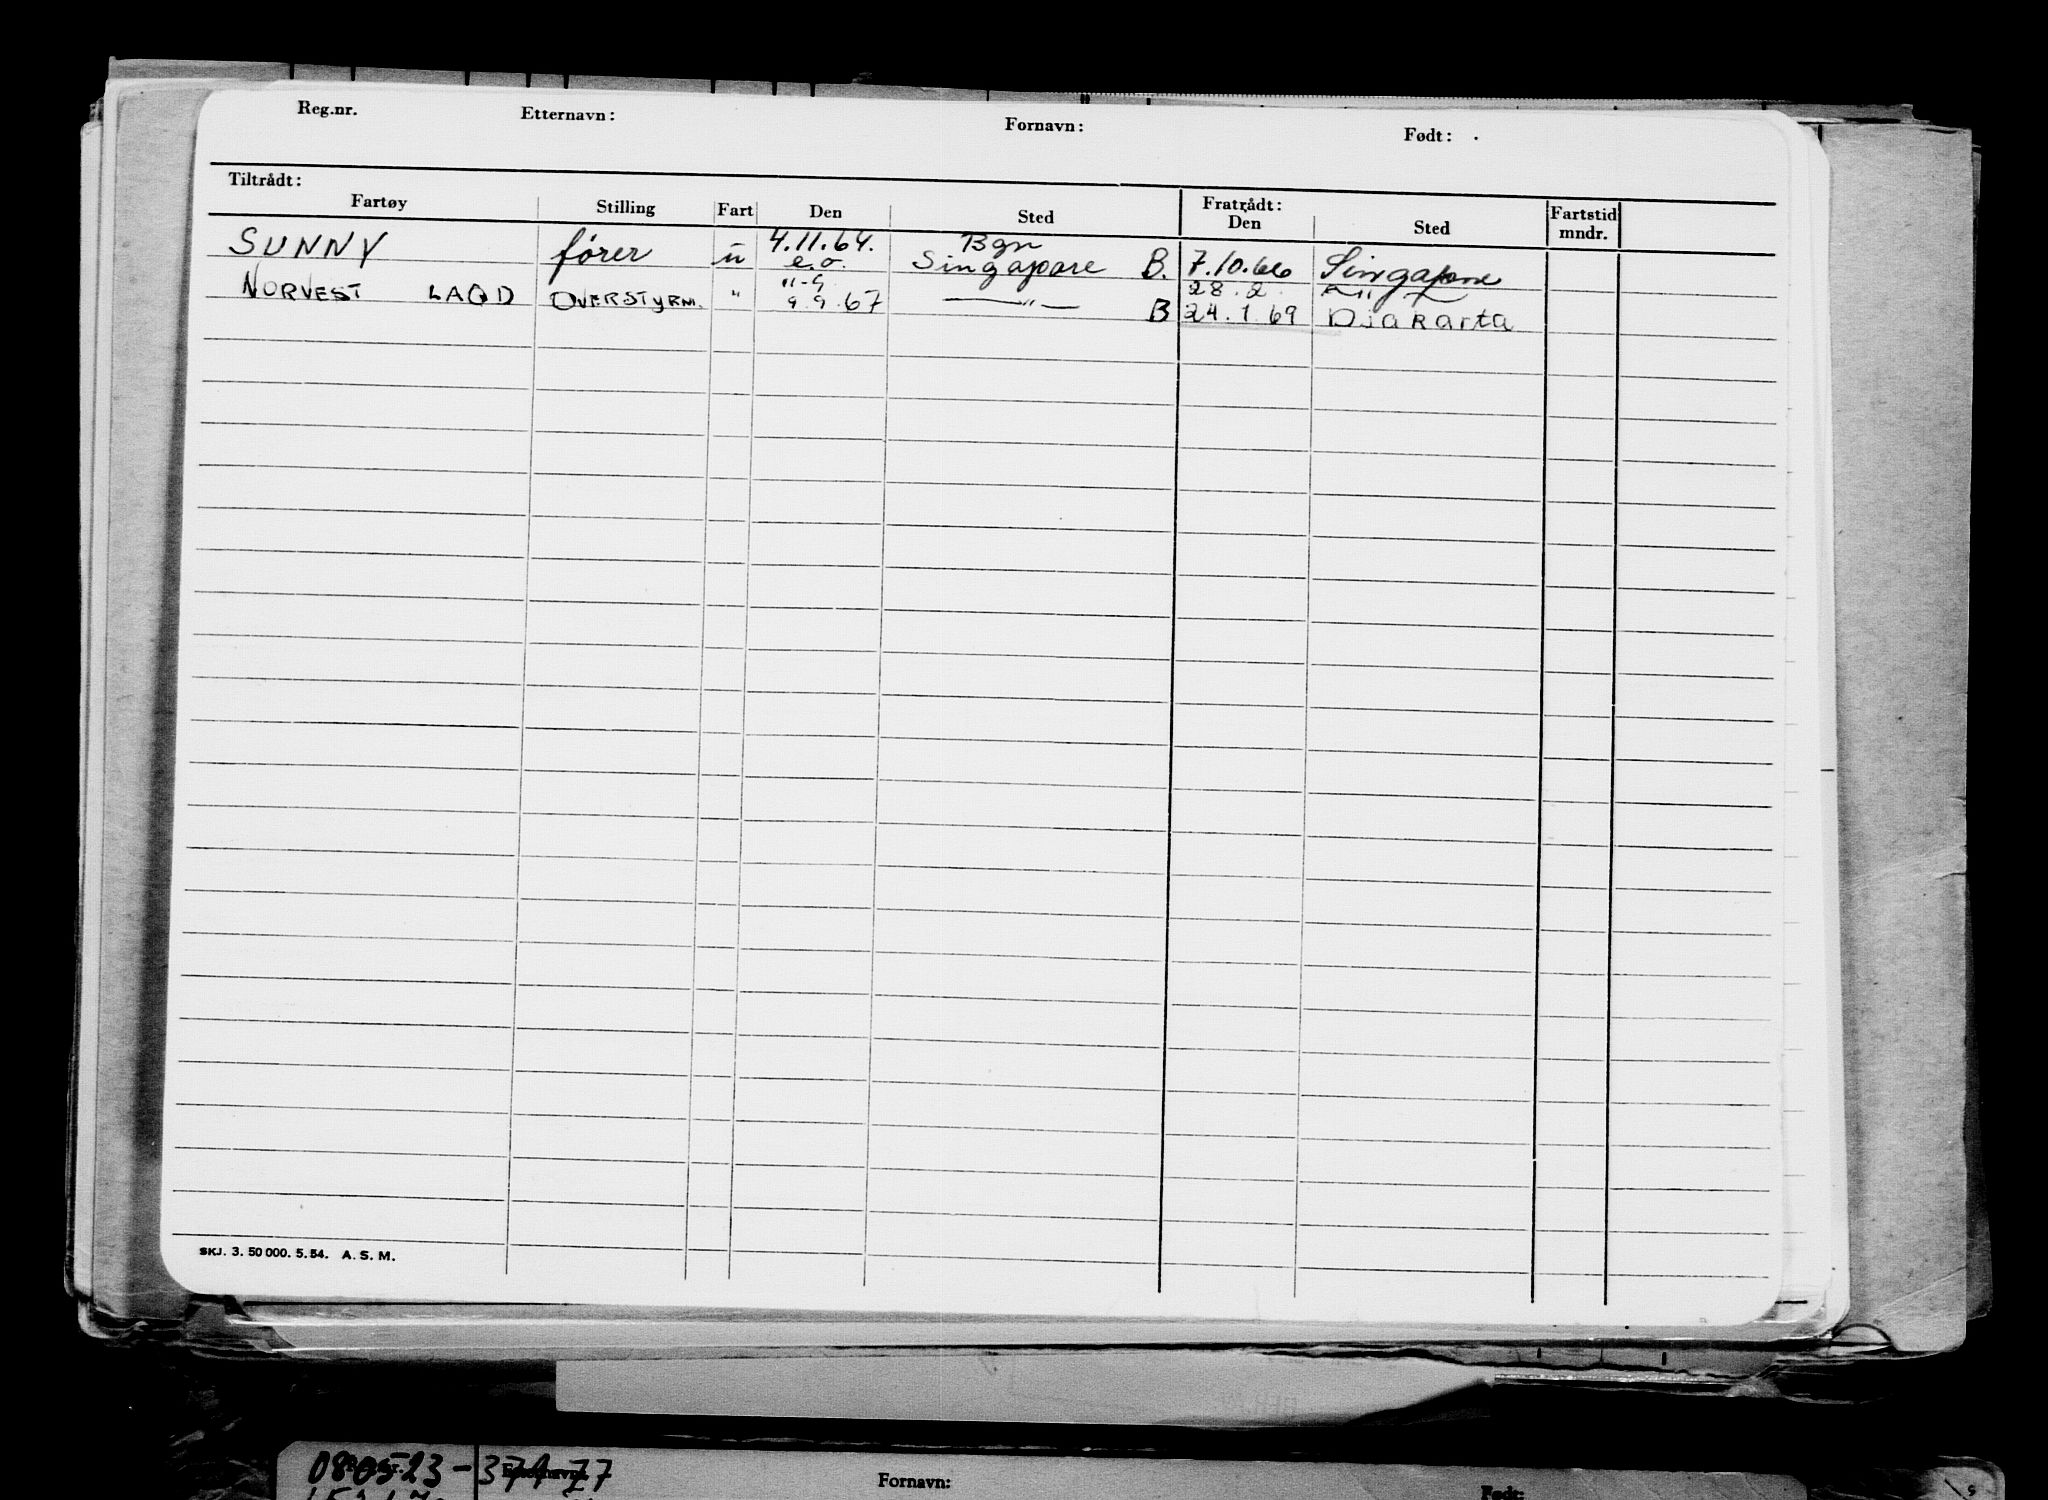 Reg.nr. Etternavn: Fornavn: Født:
Tiltrådt: Fratrådt:
Fartøy Stilling Fart Den Sted Den Sted Fartstid mndr.
SUNNY fører u 4.11.64. Bgn
e.o. Singapore B. 7.10.66 Singapore
11-9 28.2 — " —
NORVEST LAQD OVERSTYRM. " 9.9.67 — " — B 24.1.69 Djakarta
SKJ. 3. 50 000. 5. 54. A. S. M.
080523 - 37
Fornavn: Født: